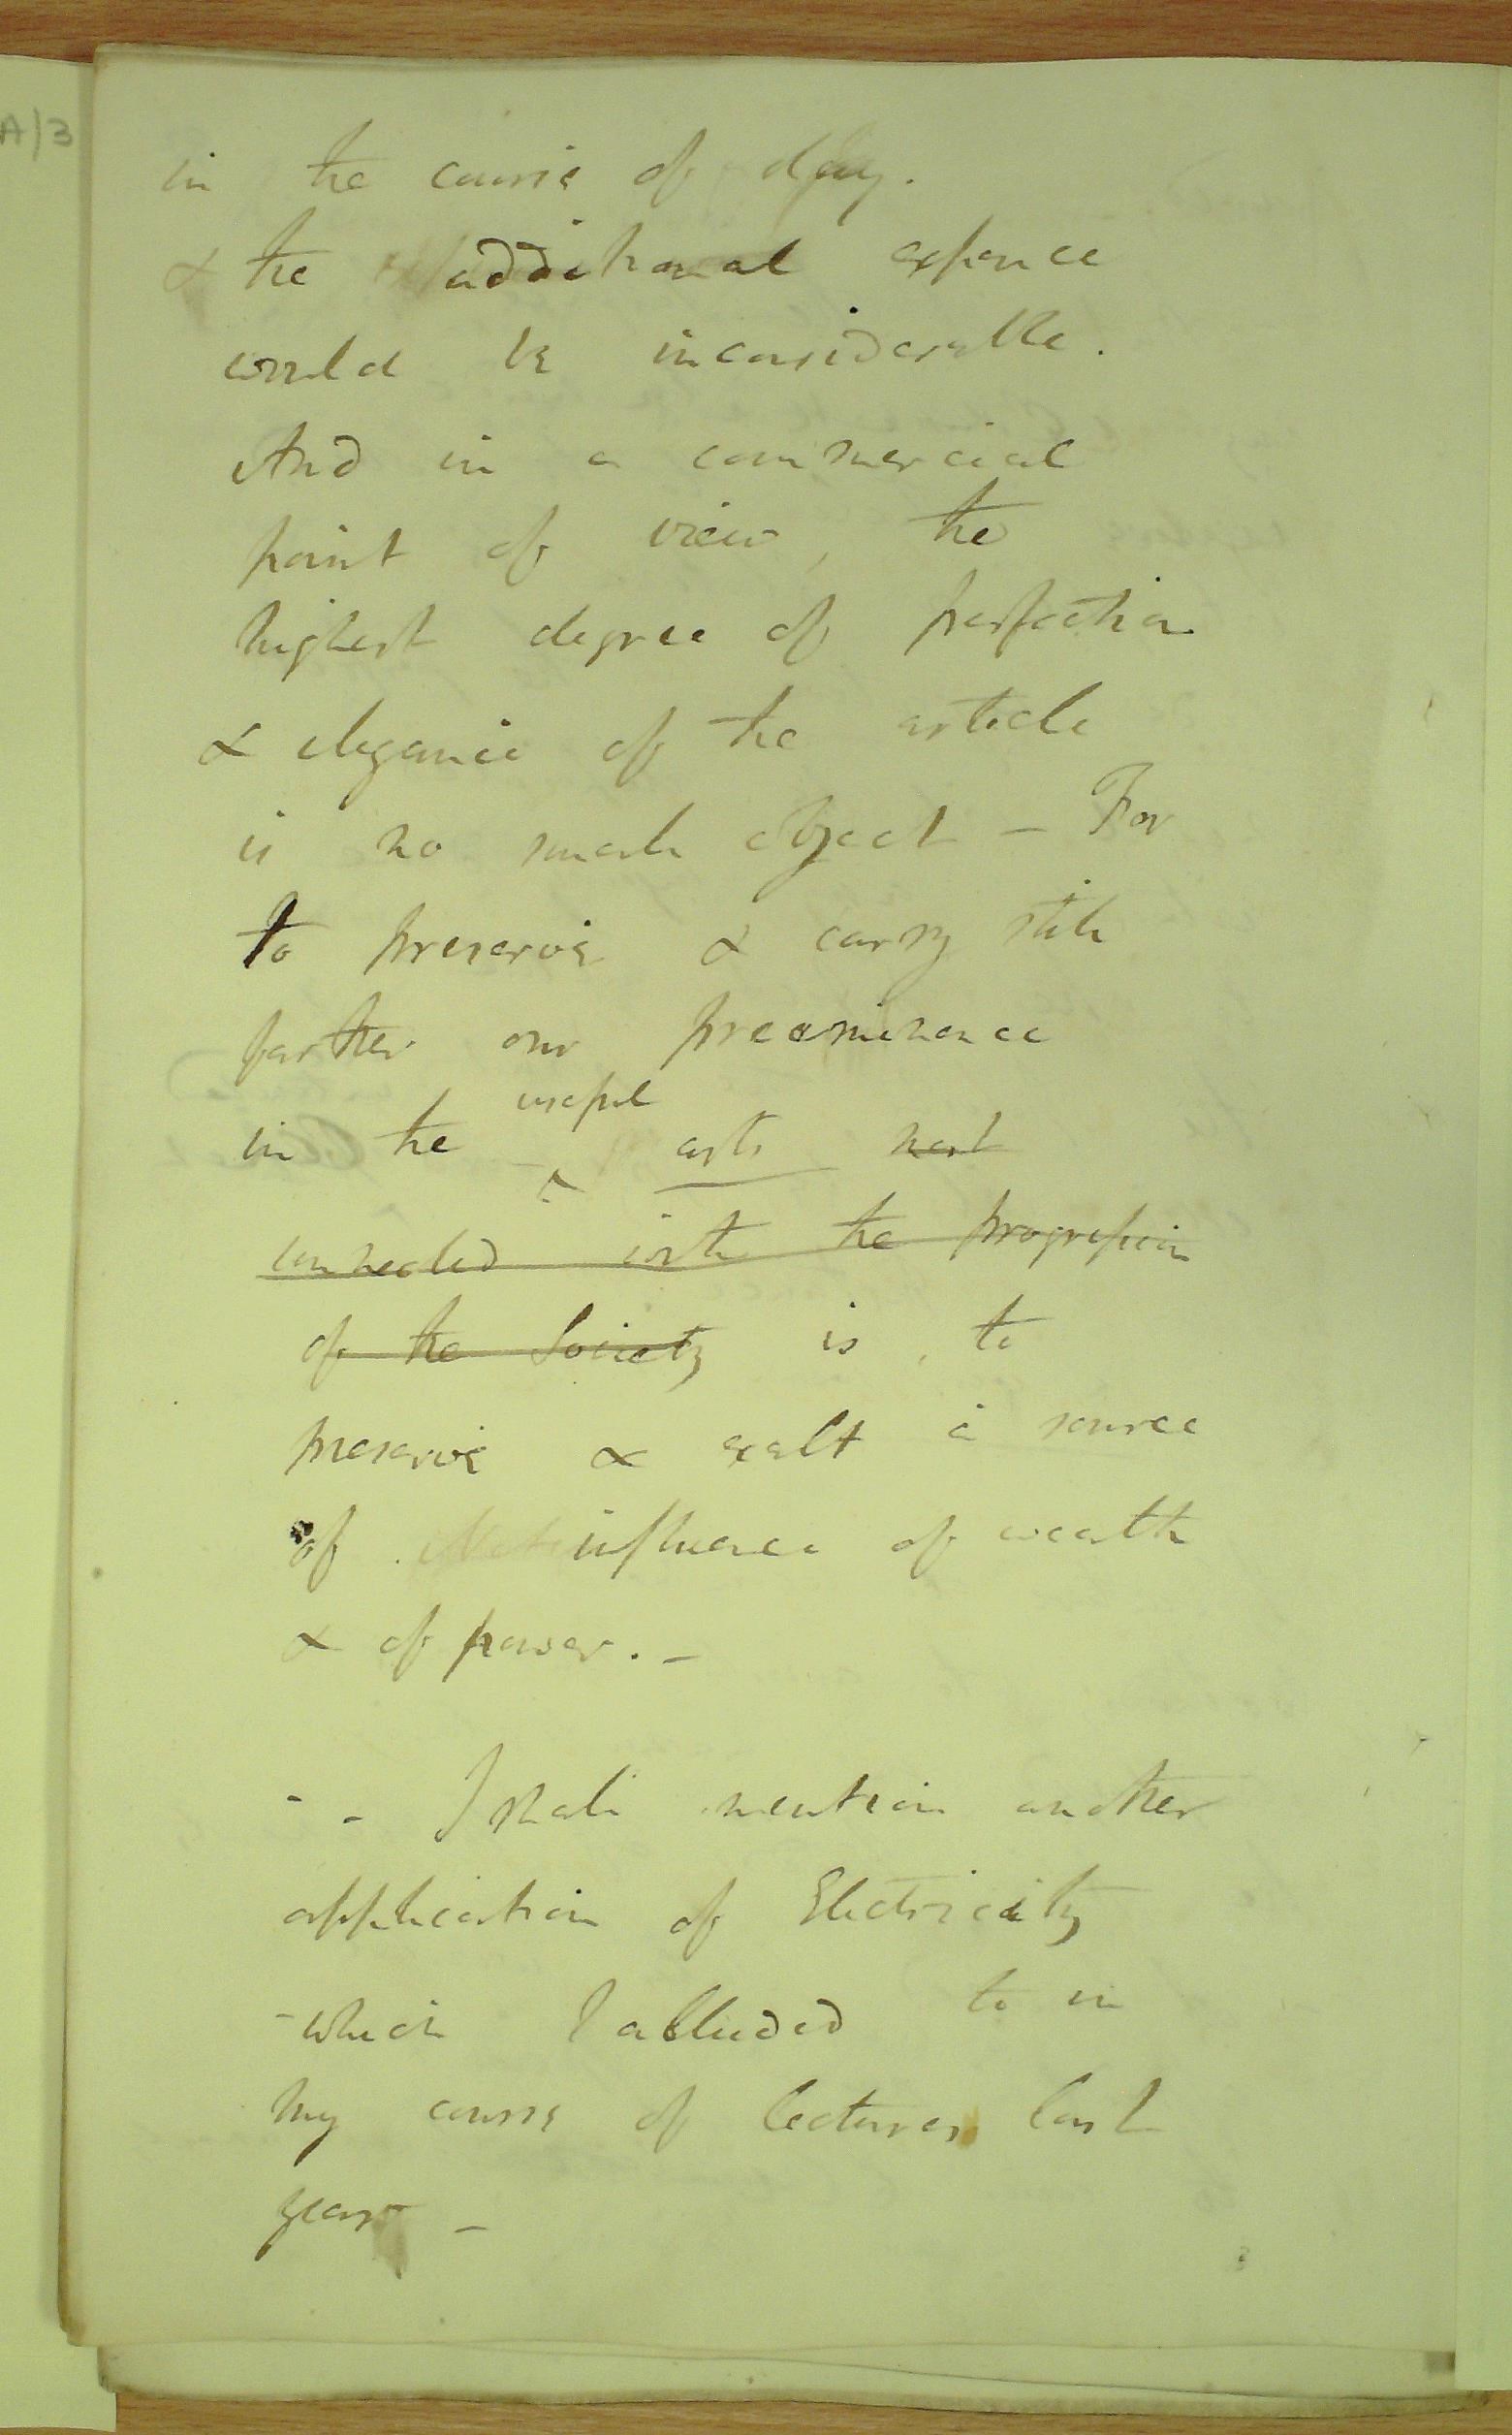 A/3
in the course of day.
& the additional expence
would be inconsiderable.
And in a commercial
point of view, the
highest degree of perfection
& elegance of the article
is no small object - For
to preserve & carry still
farther our preeminence
useful
in the ^ arts most
connected with the progression
of the Society is, to
preserve & exalt a source
of influence of wealth
& of power. -
- - I shall mention another
application of Electricity
- which I alluded to in
my course of lectures last
year -